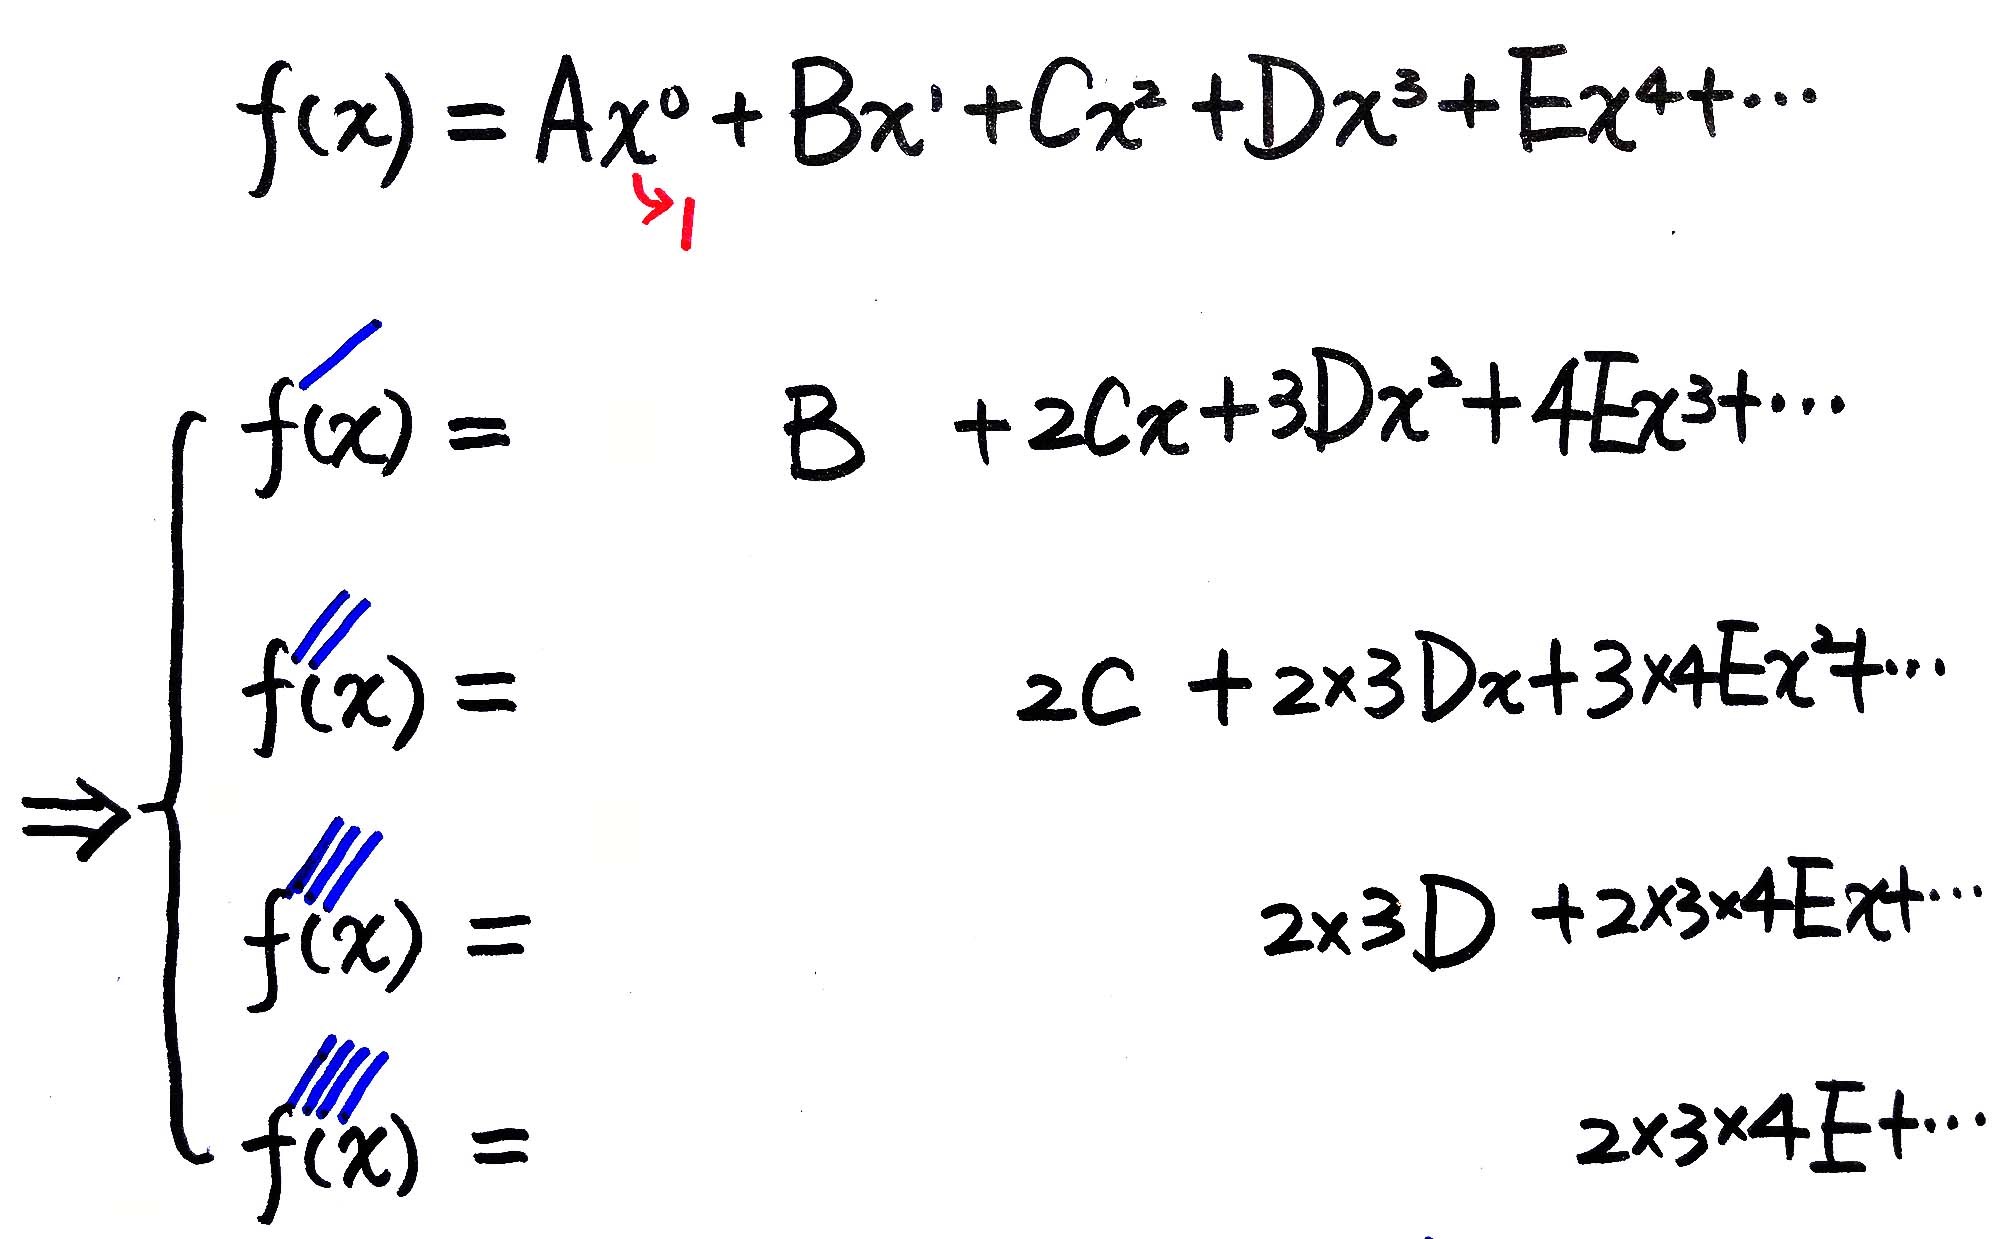 f(x) = Ax⁰ + Bx¹ + Cx² + Dx³ + Ex⁴ + ⋯
→ 1
f′(x) = B + 2Cx + 3Dx² + 4Ex³ + ⋯
f″(x) = 2C + 2×3Dx + 3×4Ex² + ⋯
⇒ { f‴(x) = 2×3D + 2×3×4Ex + ⋯
f⁗(x) = 2×3×4E + ⋯